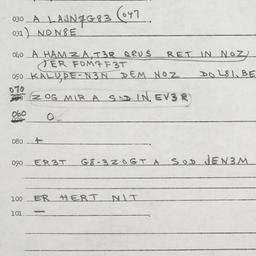 030 A LAJNZG83 (047
031) NON8E
040 A HAMZA,T3R QRUS RET IN NOZ/
(JER FOM7F3T
050 KALUPE-N3N DEM NOZ DOL81,BE
070 (ZOG MIR A SOD IN EV3R)
060 O
080 +
090 ER3T G8-3ZOGT A SOD JEN3M
100 ER HERT NIT
101 —